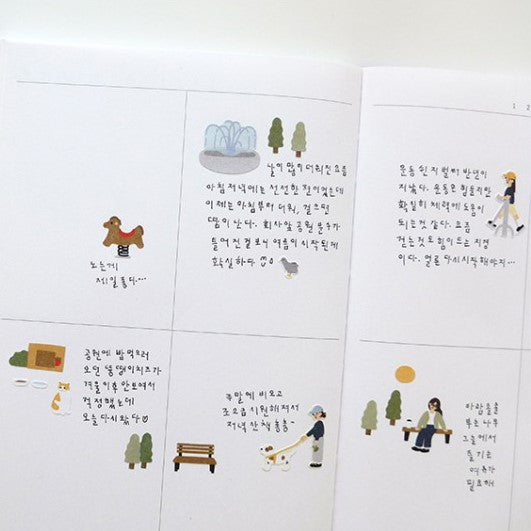 1 2
노는게
제일 좋다...
날이 많이 더워진 요즘
아침 저녁에는 선선한 철이었는데
이제는 아침부터 더워, 걸으면
땀이 난다. 회사앞 공원 분수가
틀어진걸 보니 여름이 시작된게
확실하다
운동 쉰지 벌써 반년이
지났다. 운동은 힘들지만
확실히 체력에 도움이
되는것 같다. 요즘
걷는것도 힘이 드는 지경
이다. 얼른 다시 시작해야지...
공원에 밥 먹으러
오던 뚱땡이 치즈가
겨울 이후 안보여서
걱정했는데
오늘 다시 왔다
주말에 비오고
조금 시원해져서
저녁 산책
바람
부는 나무
그늘에서
즐기는
여유가
필요해